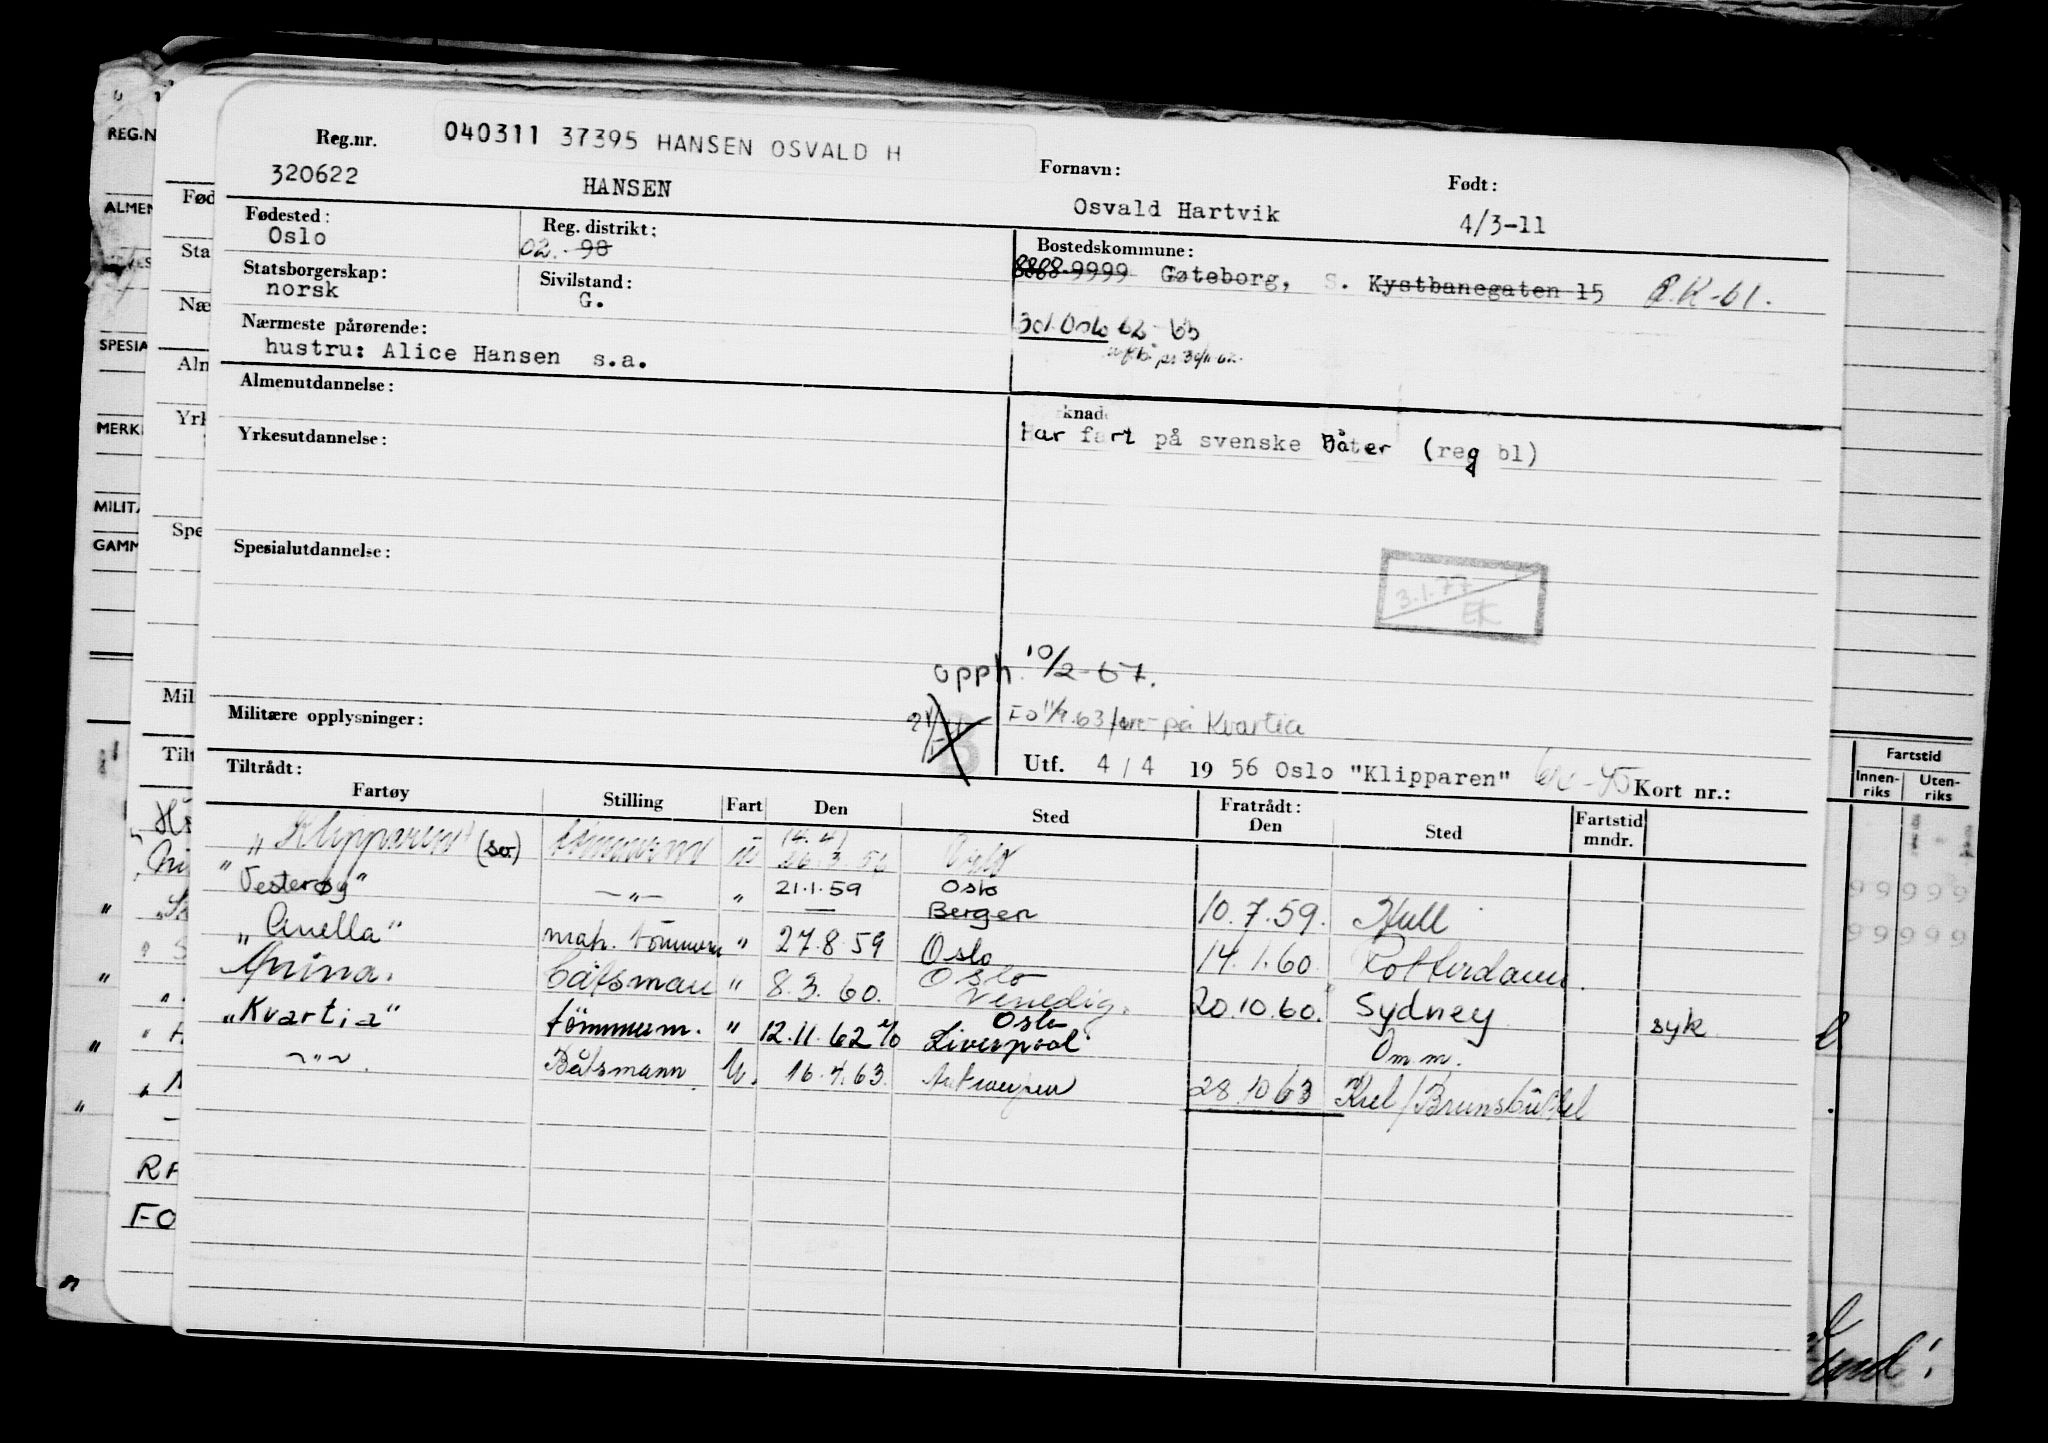 040311 37395 HANSEN OSVALD H
Reg.nr.
320622 HANSEN
Fornavn: Født:
Osvald Hartvik 4/3-11
Fødested: Reg. distrikt: Bostedskommune:
Oslo 02. 98 8868-9999 Gøteborg, S. Kystbanegaten 15
Statsborgerskap: Sivilstand:
norsk G.
301 Oslo 62-63
Nærmeste pårørende:
hustru: Alice Hansen s.a.
Almenutdannelse:
Har fart på svenske Båter (reg bl)
Yrkesutdannelse:
Spesialutdannelse:
3.1.77
EK
opph. 10/2-67.
Militære opplysninger: FO 11/9.63 på Kvartia
Utf. 4/4 1956 Oslo "Klipparen" Kort nr.:
Tiltrådt: Fratrådt:
Fartøy Stilling Fart Den Sted Den Sted Fartstid mndr.
"Klipparen" (sv.) tømmerm u (4.4) 26.3.56 Oslo
"Vesterøy" —"— " 21.1.59 Oslo
— Bergen 10.7.59. Hull
"Anella" " 27.8.59 Oslo 14.1.60. Rotterdam.
Anina. Båtsman " 8.3.60. Oslo
Venedig. 20.10.60. Sydney syk
"Kvartia" tömmerm. " 12.11.62 Oslo
Liverpool Om m.
—"—. Båtsmann U. 16.4.63. Antwerpen 28.10 63 Kiel/Brunsbüttel
REG.N
ALMEN
SPESIA
MERK
MILITÆ
GAMM
Fød
Sta
Næ
Aln
Yrk
Spe
Mil
Tilt
FO
Fartstid
Innen-
riks
Uten-
riks